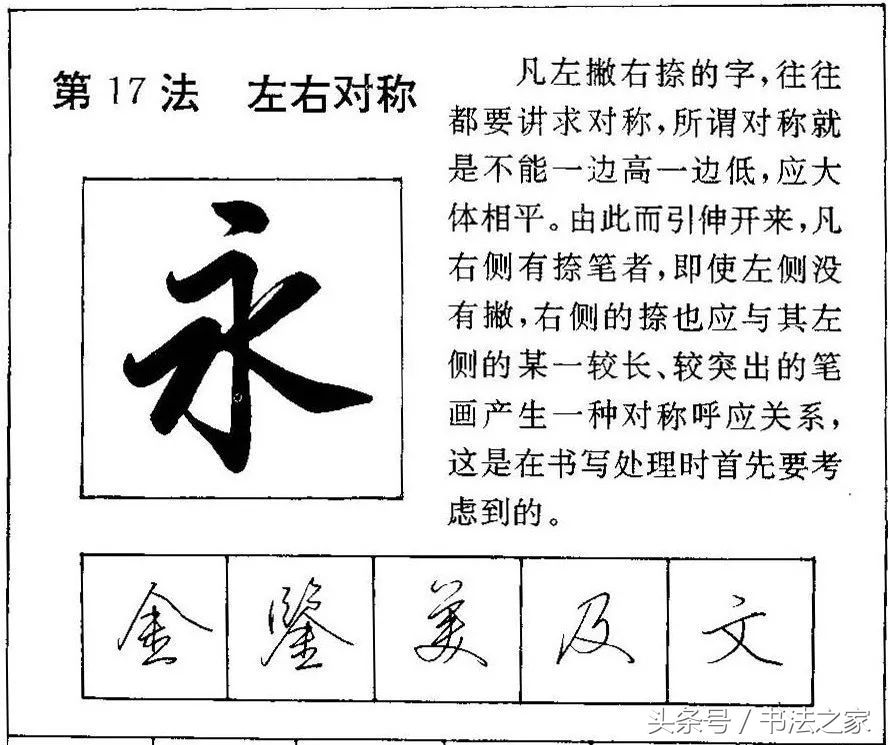 第17法 左右对称
凡左撇右捺的字，往往
都要讲求对称，所谓对称就
是不能一边高一边低，应大
体相平。由此而引伸开来，凡
右侧有捺笔者，即使左侧没
有撇，右侧的捺也应与其左
侧的某一较长、较突出的笔
画产生一种对称呼应关系，
这是在书写处理时首先要考
虑到的。
永
金 鉴 美 及 文
头条号 / 书法之家